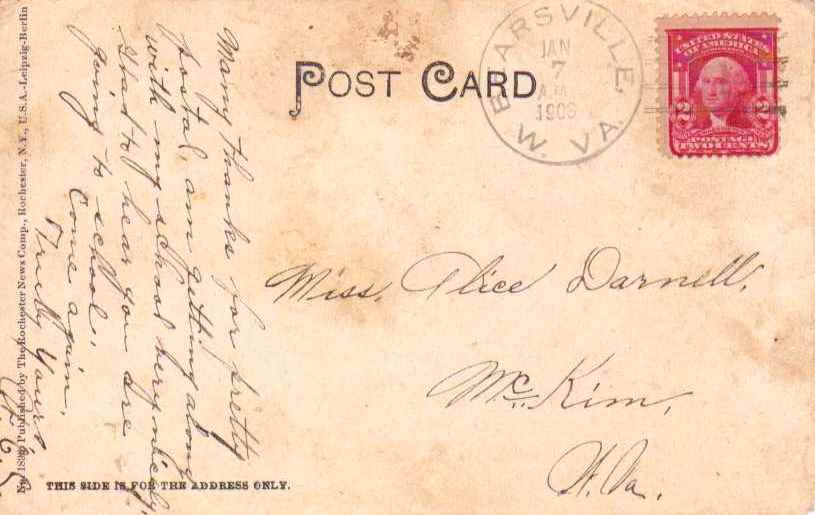 POST CARD
BEARSVILLE,
W. VA.
JAN
7
A.M.
1906
UNITED STATES
OF AMERICA
2 2
POSTAGE
TWO CENTS
Miss. Alice Darnell,
McKim,
W. Va.
Many thanks for pretty
postal, am getting along
with my school very nicely
Glad to hear you are
going to school.
Come again.
Truly Yours
Published by The Rochester News Comp., Rochester, N.Y., U.S.A.-Leipzig-Berlin
THIS SIDE IS FOR THE ADDRESS ONLY.